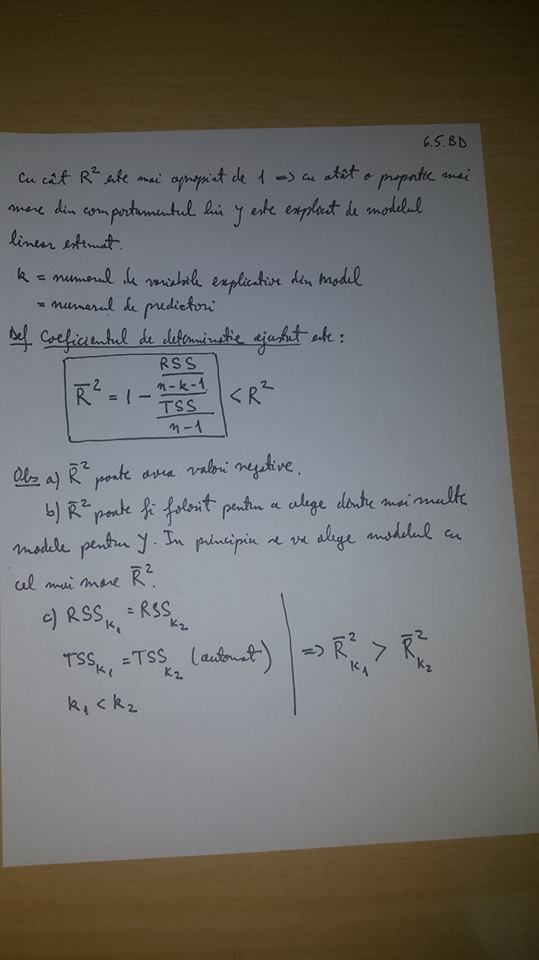 6.5.BD
Cu cât R² este mai apropiat de 1 => cu atât o proporție mai
mare din comportamentul lui y este explicat de modelul
linear estimat.
k = numarul de variabile explicative din model
= numarul de predictori
Def Coeficientul de determinatie ajustat este:
R̄² = 1 - (RSS/(n-k-1))/(TSS/(n-1)) < R²
Obs a) R̄² poate avea valori negative.
b) R̄² poate fi folosit pentru a alege dintre mai multe
modele pentru y. In principiu se va alege modelul cu
cel mai mare R̄².
c) RSS_k₁ = RSS_k₂
TSS_k₁ = TSS_k₂ (automat) => R̄²_k₁ > R̄²_k₂
k₁ < k₂